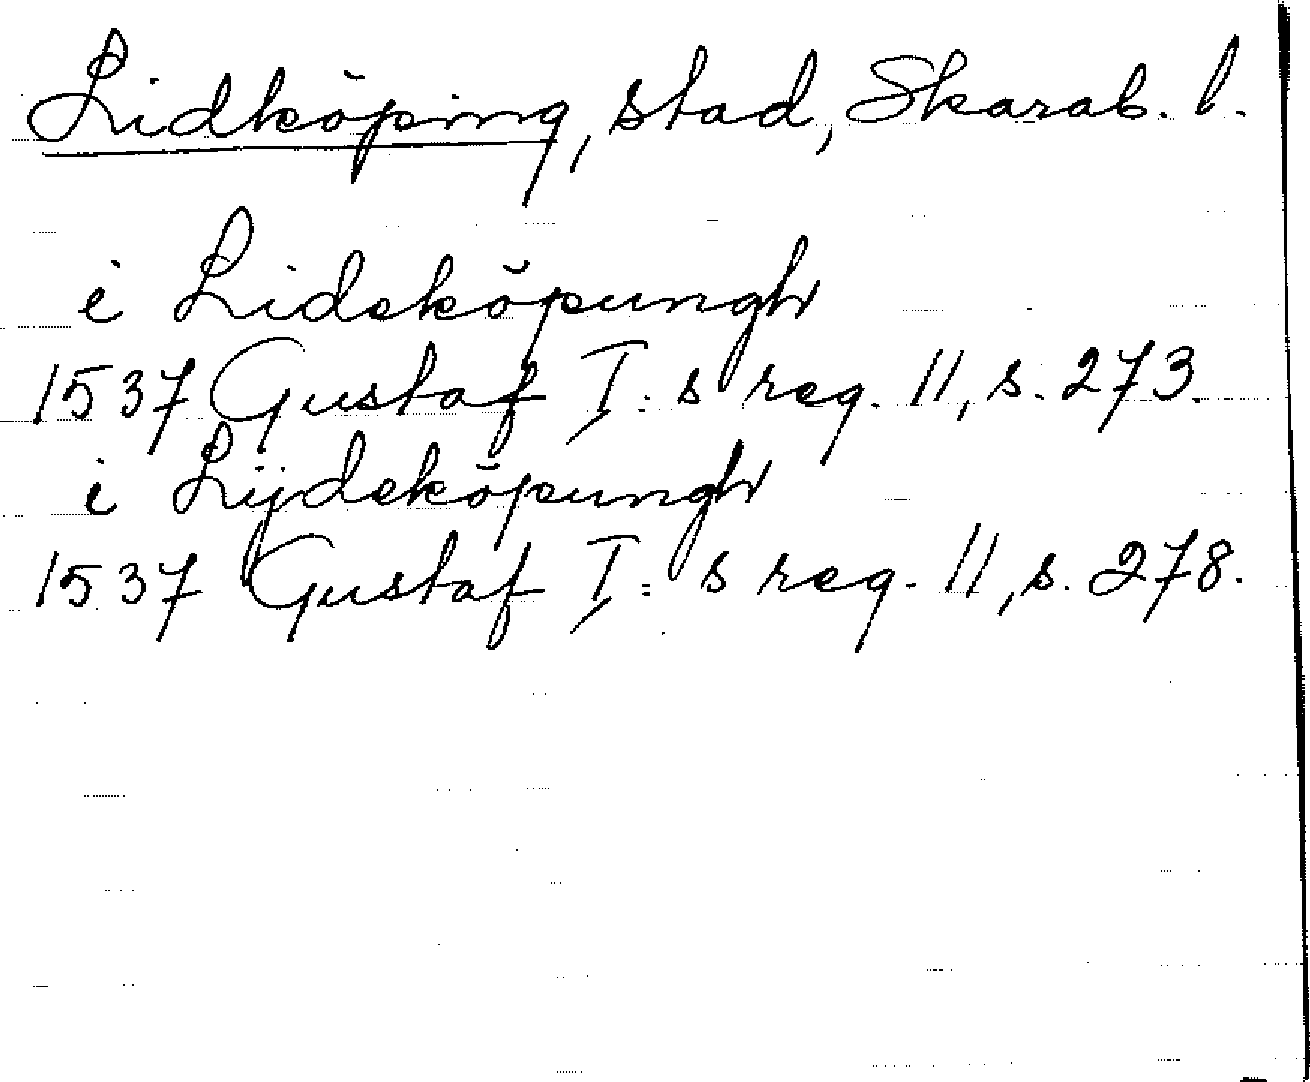 Lidköping, stad, Skarab. l.
i Lideköpungh
1537 Gustaf I:s reg. 11, s. 273.
i Lijdeköpungh
1537 Gustaf I:s reg. 11, s. 278.